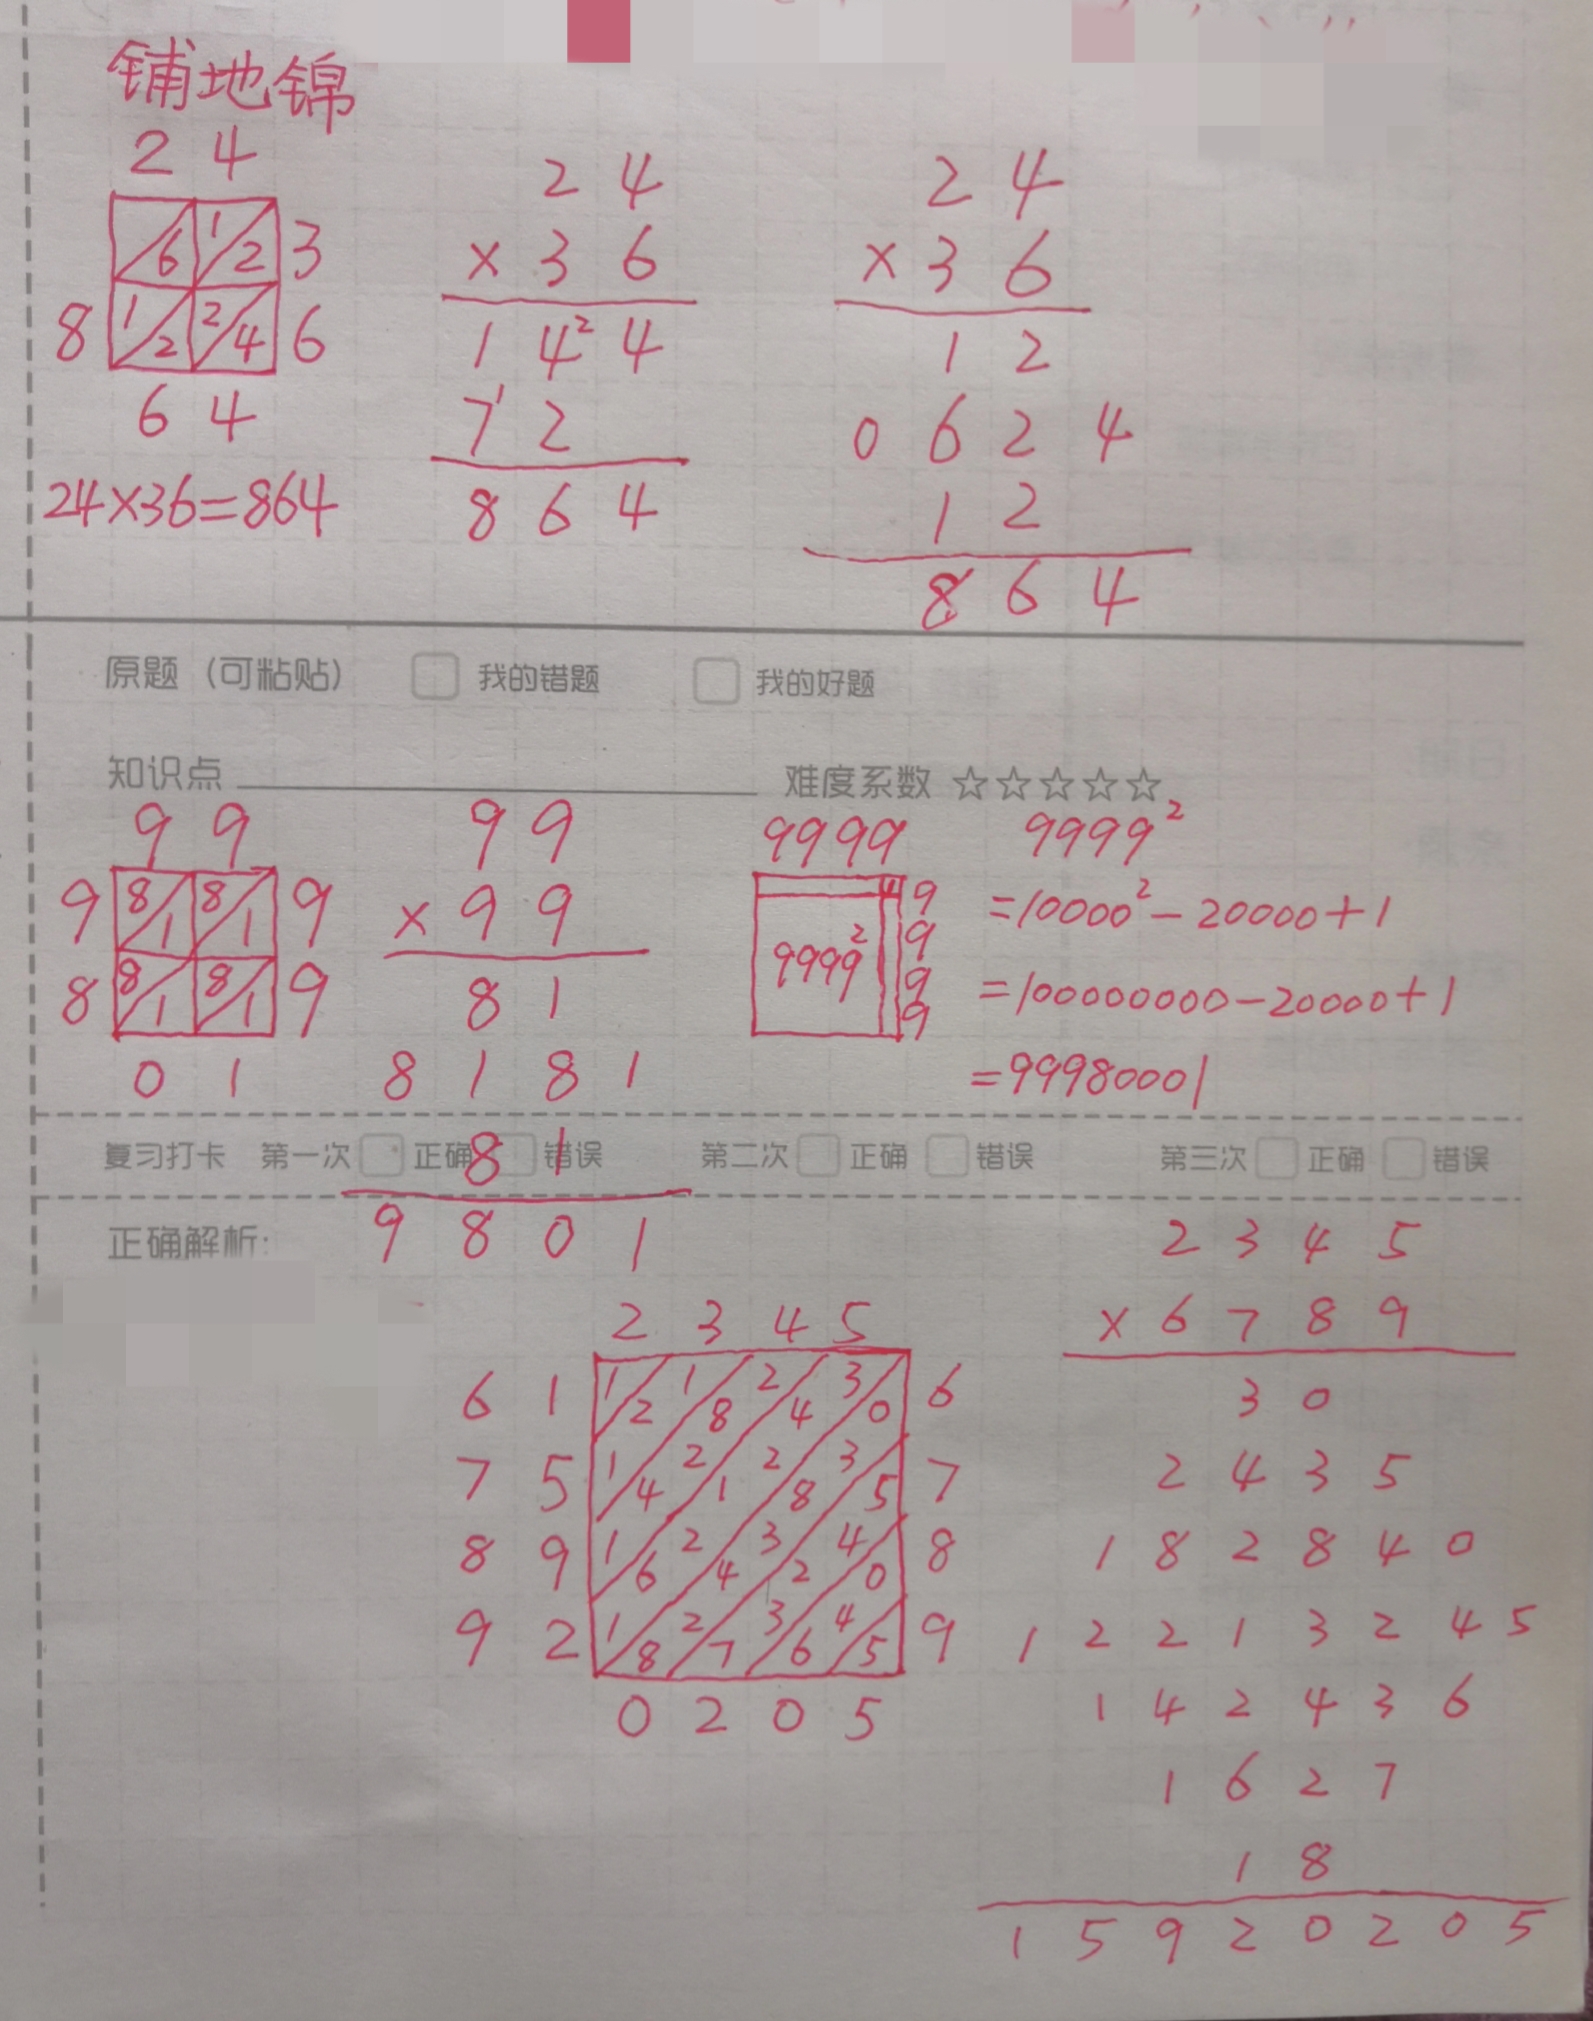 铺地锦
2 4
6 1 2 3
8 1 2 2 4 6
6 4
24×36=864
2 4
× 3 6
1 4² 4
7¹ 2
8 6 4
2 4
× 3 6
1 2
0 6 2 4
1 2
8 6 4
原题（可粘贴） 我的错题 我的好题
知识点 难度系数 ☆☆☆☆☆
9 9
9 8 1 8 1 9
8 8 1 8 1 9
0 1
9 9
× 9 9
8 1
8 1 8 1
8 1
9 8 0 1
9999
1 9
9
9999² 9
9
9999²
=10000²-20000+1
=100000000-20000+1
=99980001
复习打卡 第一次 正确 错误 第二次 正确 错误 第三次 正确 错误
正确解析：
2 3 4 5
6 1 1 2 1 8 2 4 3 0 6
7 5 1 4 2 1 2 8 3 5 7
8 9 1 6 2 4 3 2 4 0 8
9 2 1 8 2 7 3 6 4 5 9
0 2 0 5
2 3 4 5
× 6 7 8 9
3 0
2 4 3 5
1 8 2 8 4 0
1 2 2 1 3 2 4 5
1 4 2 4 3 6
1 6 2 7
1 8
1 5 9 2 0 2 0 5